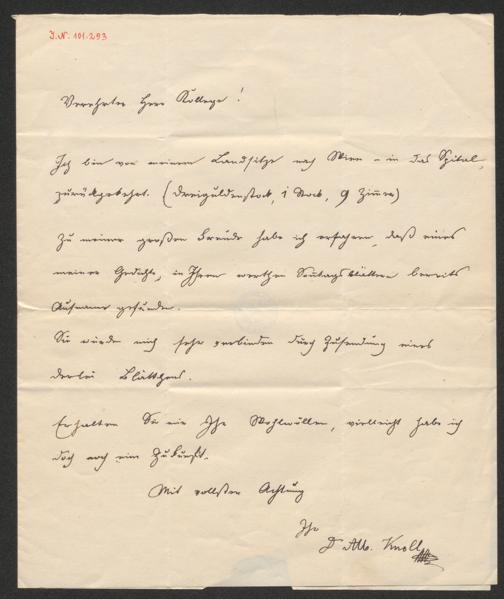 I.N. 101.293
Verehrter Herr Kollege!
Ich bin von meinem Landsitze nach Wien – in das Spital,
zurückgekehrt. (Dreiguldenstock, 1 Stock, 9 Zimmer)
Zu meiner großen Freude habe ich erfahren, daß eines
meiner Gedichte, in Ihrem werthen Sontagsblättern bereits
Aufname gefunden.
Sie würden mich sehr verbinden durch Zusendung eines
derlei Blättchens.
Erhalten Sie mir Ihr Wohlwollen, vielleicht habe ich
doch noch eine Zukunft.
Mit vollster Achtung
Ihr
Dr Alb. Knoll